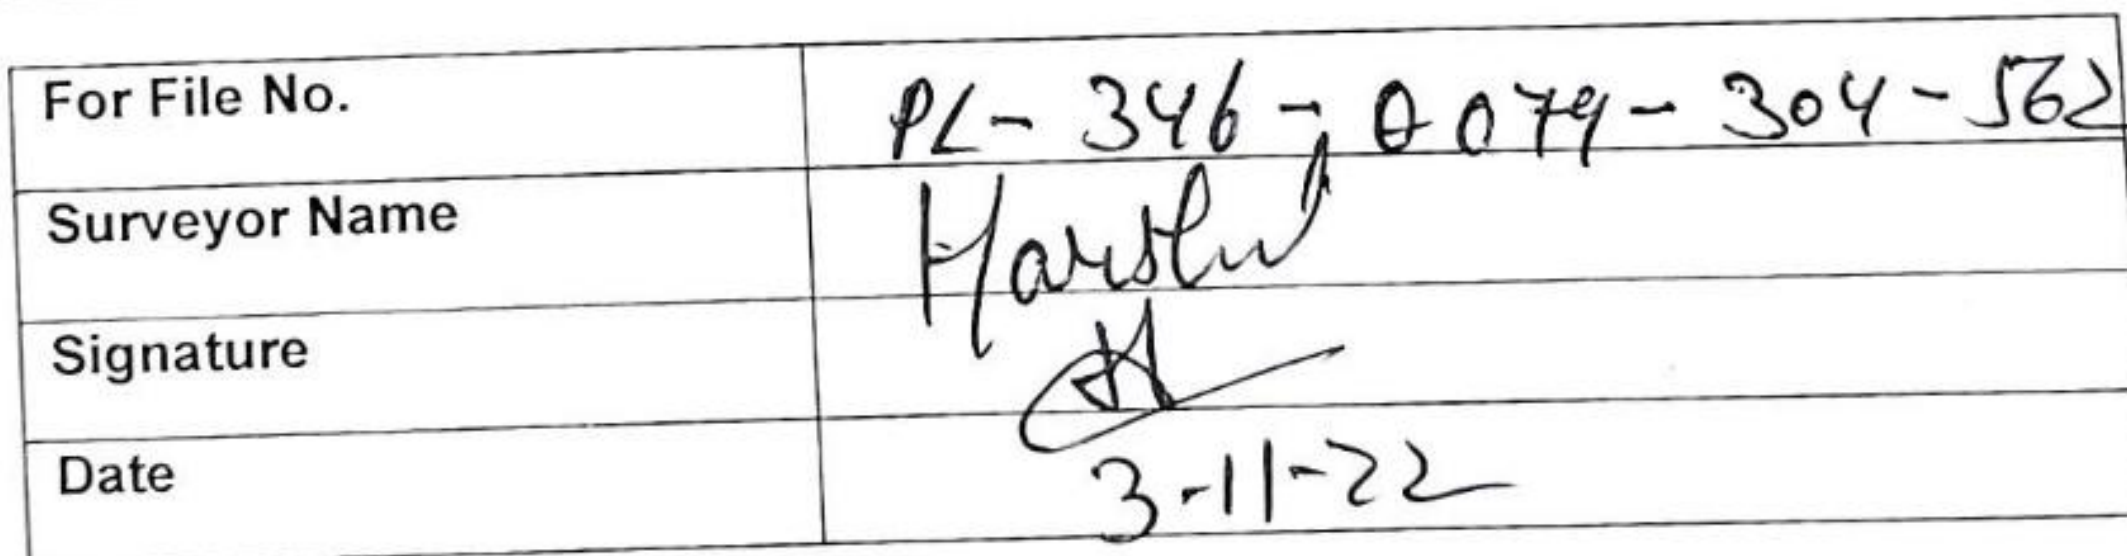 For File No. PL- 346 - 0079 - 304 - 562
Surveyor Name Harshit
Signature
Date 3-11-22